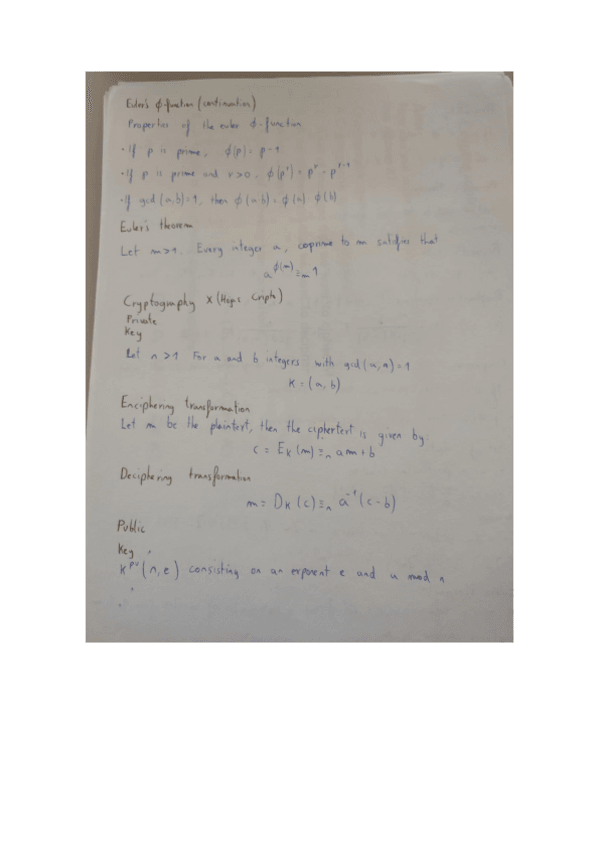 Euler's ϕ-function (continuation)
Properties of the euler ϕ-function
· If p is prime, ϕ(p) = p-1
· If p is prime and r>0, ϕ(p^r) = p^r - p^(r-1)
· If gcd(a,b)=1, then ϕ(ab) = ϕ(a) ϕ(b)
Euler's theorem
Let m>1. Every integer a, coprime to m satisfies that
a^ϕ(m) ≡_m 1
Cryptography x (Hojas Cripto)
Private
Key
Let n>1 For a and b integers with gcd(a,n)=1
K = (a, b)
Enciphering transformation
Let m be the plaintext, then the ciphertext is given by:
c = E_K (m) ≡_n am+b
Deciphering transformation
m = D_K (c) ≡_n a^-1 (c-b)
Public
Key
K^pu (n,e) consisting on an exponent e and a mod n